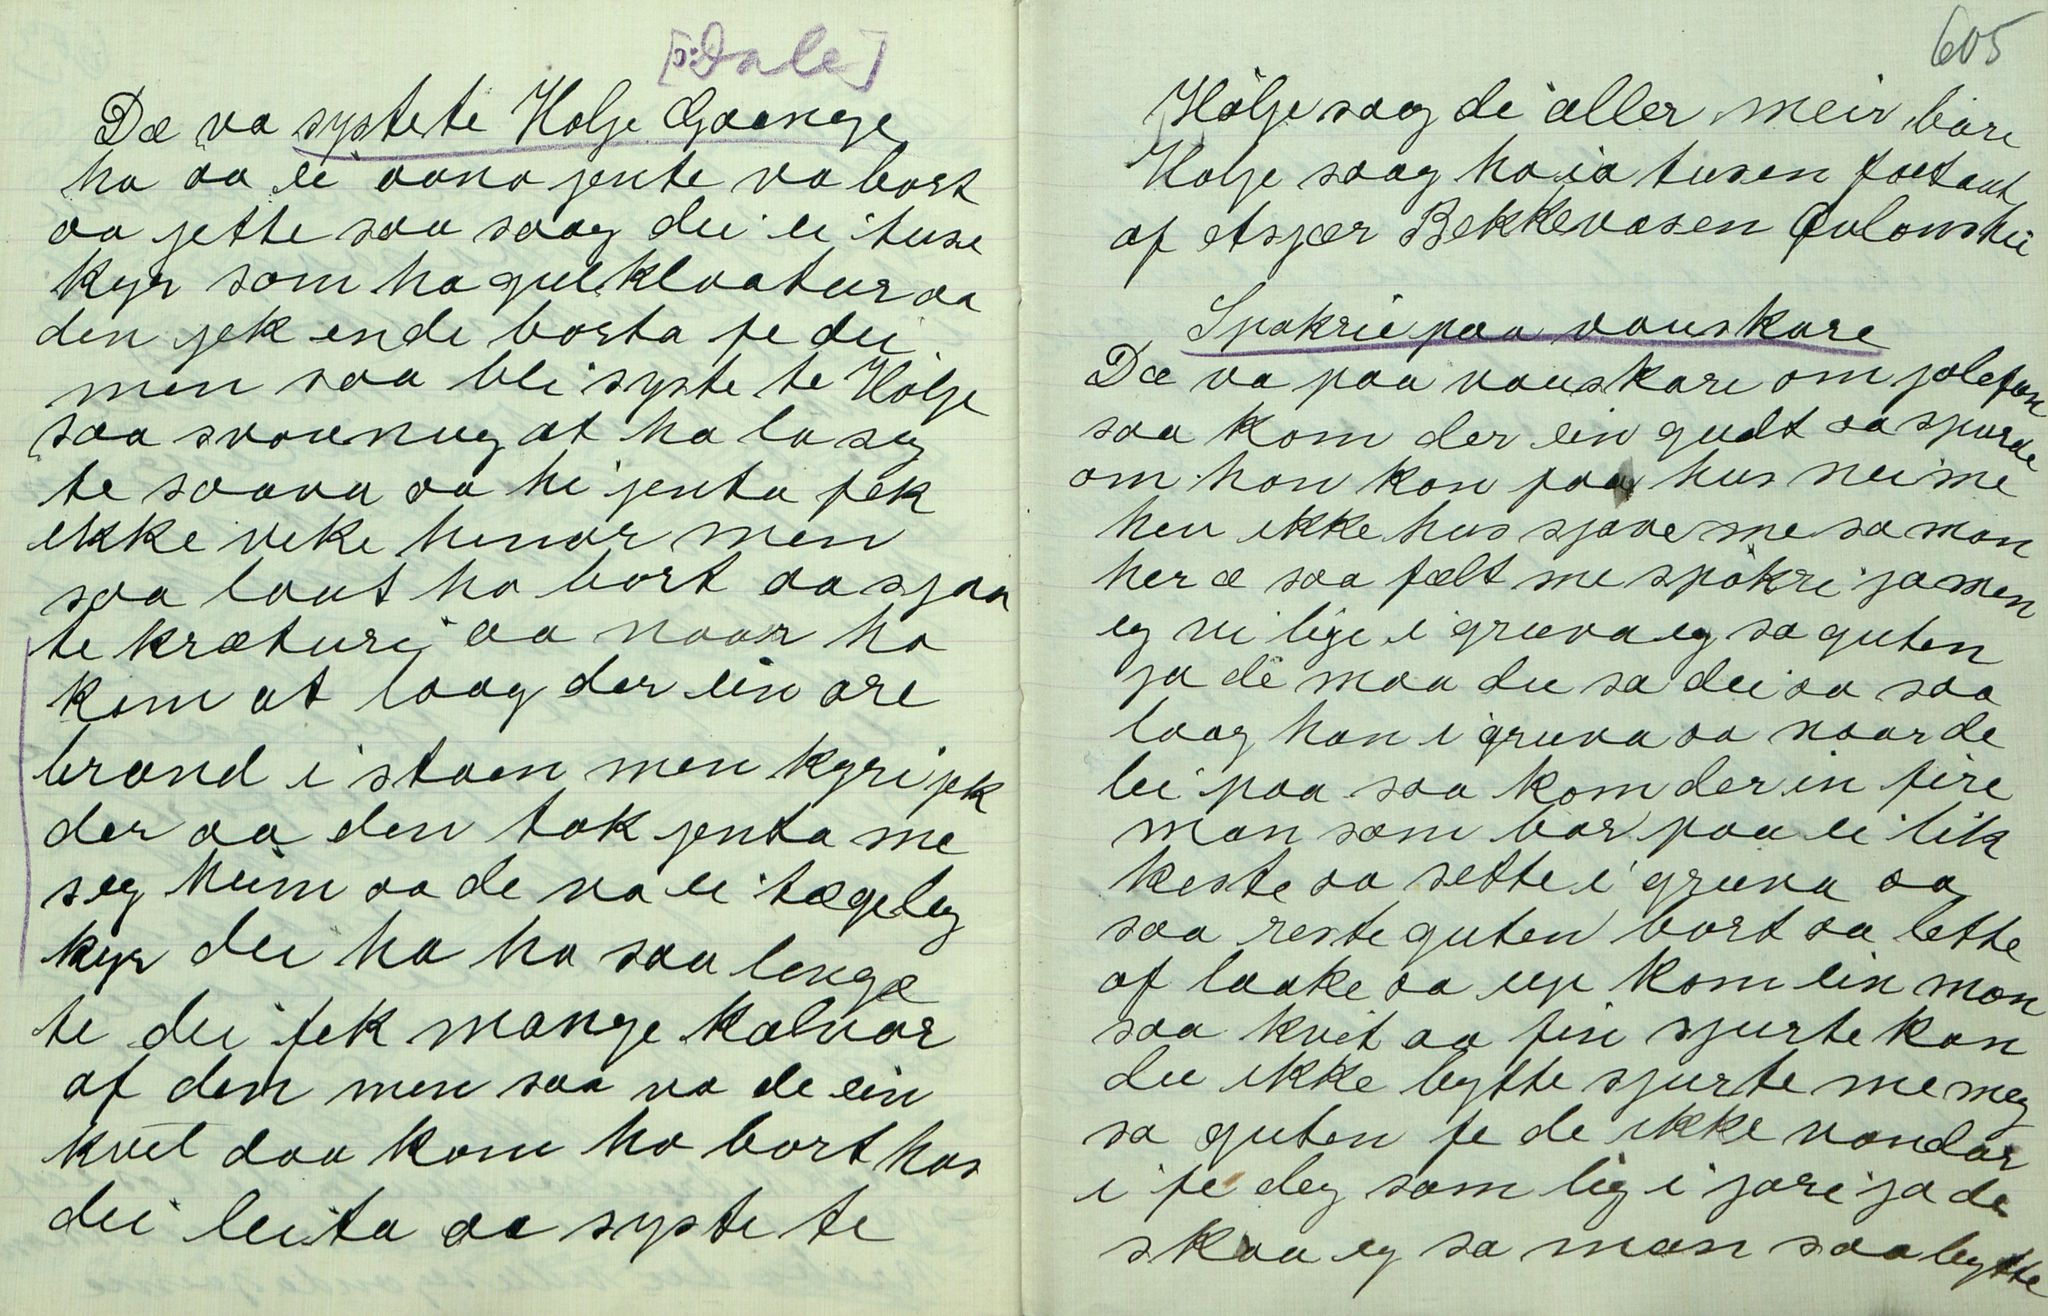 [ɔ: Dale]
Dæ va systete Holje Gaange
ho aa ei aana jente va bort
aa jette saa saag dei ei tuse
kyr som ha gul klaatur aa
den jek ende borta fe dei
men saa blei syste te Holje
saa svoven ug at ho la seg
te saava aa hi jenta fek
ikke veke henar men
saa laut ho bort aa sjaa
te kræturi aa naar ho
kom at laag der ein are
brand i staen men kyri jek
der aa den tok jenta me
seg heim aa de va ei tægeleg
kyr dei ha ho saa lengæ
te dei fek mange kalvar
af den men saa va de ein
kvel daa kom ho bort hos
dei leita aa syste te
605
Holje saag de aller meir bare
Holje saag ho ia tusen fortaut
af Asjær Bekkevasen Aulonskii
Spøkrie paa vauskare
Dæ va paa vauskare om jolefan
saa kom der ein gudt aa spurde
om han kon faa hus nei me
heu ikke hus sjøve me sa man
her æ saa fælt me spøkri ja men
eg vi lige i gruva eg sa guten
ja de maa du sa dei aa saa
laag han i gruva aa naar de
lei paa saa kom der in fire
man som bar paa ei lik
keste aa sette i gruva aa
saa reste guten bort aa lette
af laake aa up kom ein man
saa kvit aa fin sjurte kan
du ikke bytte sjurte me meg
sa guten fe de ikke vandar
i fe deg som lig i jori ja de
skaa eg sa man saa bytte